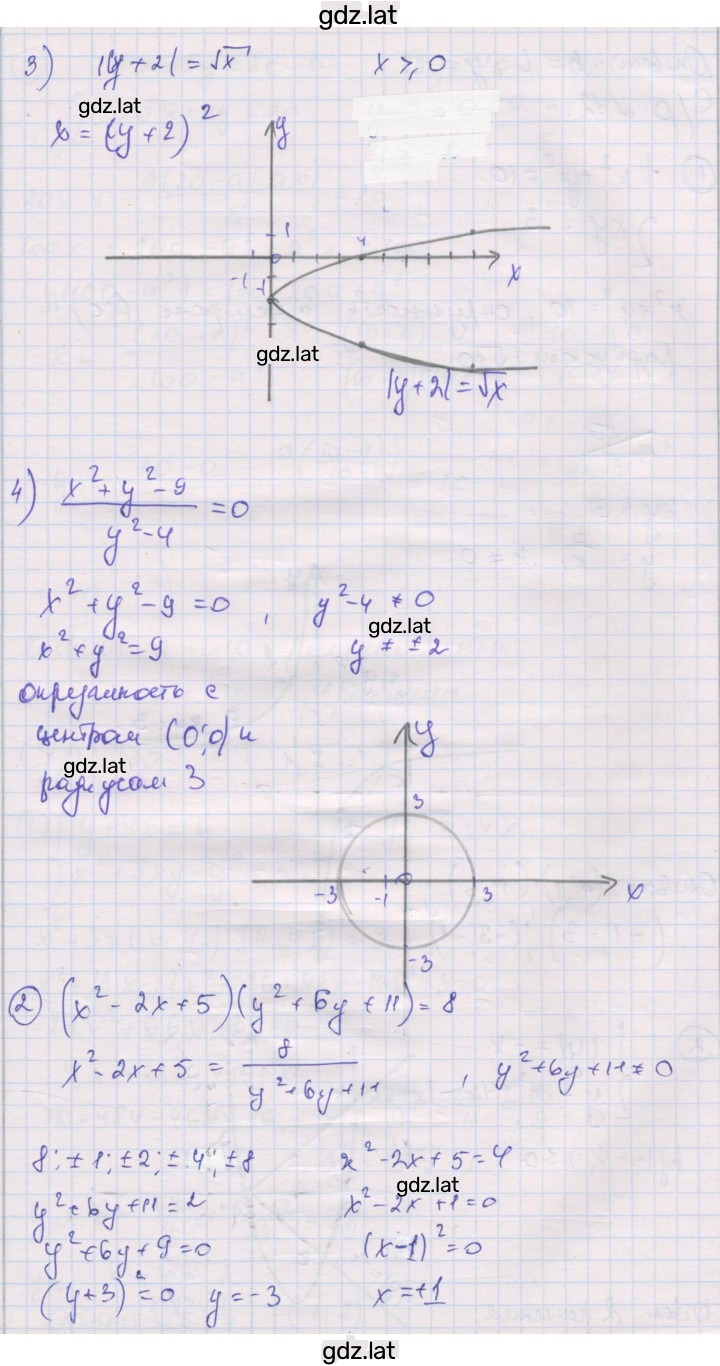 gdz.lat
3) |y+2| = √x x ⩾ 0
gdz.lat
x = (y+2)²
y
1
4
0
x
-1
-1
gdz.lat
|y+2| = √x
4) (x²+y²-9)/(y²-4) = 0
x²+y²-9 = 0 , y²-4 ≠ 0
gdz.lat
x²+y²=9 y ≠ ±2
окружность с
центром (0;0) и
gdz.lat
радиусом 3
y
3
-3 -1 0 3 x
-3
② (x²-2x+5)(y²+6y+11) = 8
x²-2x+5 = 8/(y²+6y+11) , y²+6y+11≠0
8: ±1; ±2; ±4; ±8 x²-2x+5=4
gdz.lat
y²+6y+11=2 x²-2x+1=0
y²+6y+9=0 (x-1)²=0
(y+3)²=0 y=-3 x=+1
gdz.lat